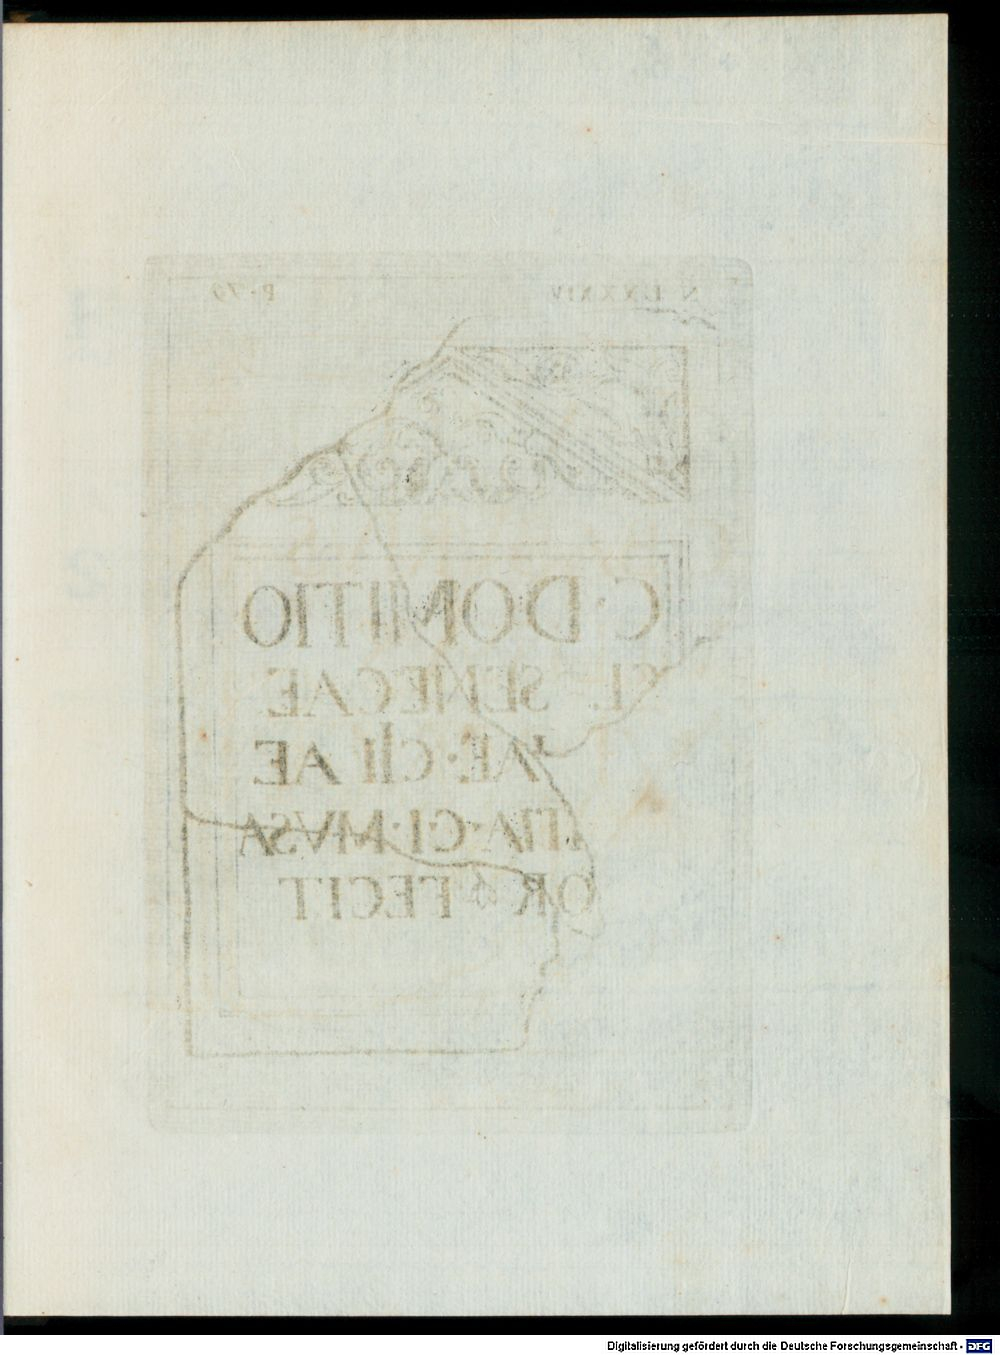 N LXXXIV P·79
C·DOMITIO
CL SENECAE
AE·CHAE
TIA·CI·MVSA
OR FECIT
Digitalisierung gefördert durch die Deutsche Forschungsgemeinschaft - DFG